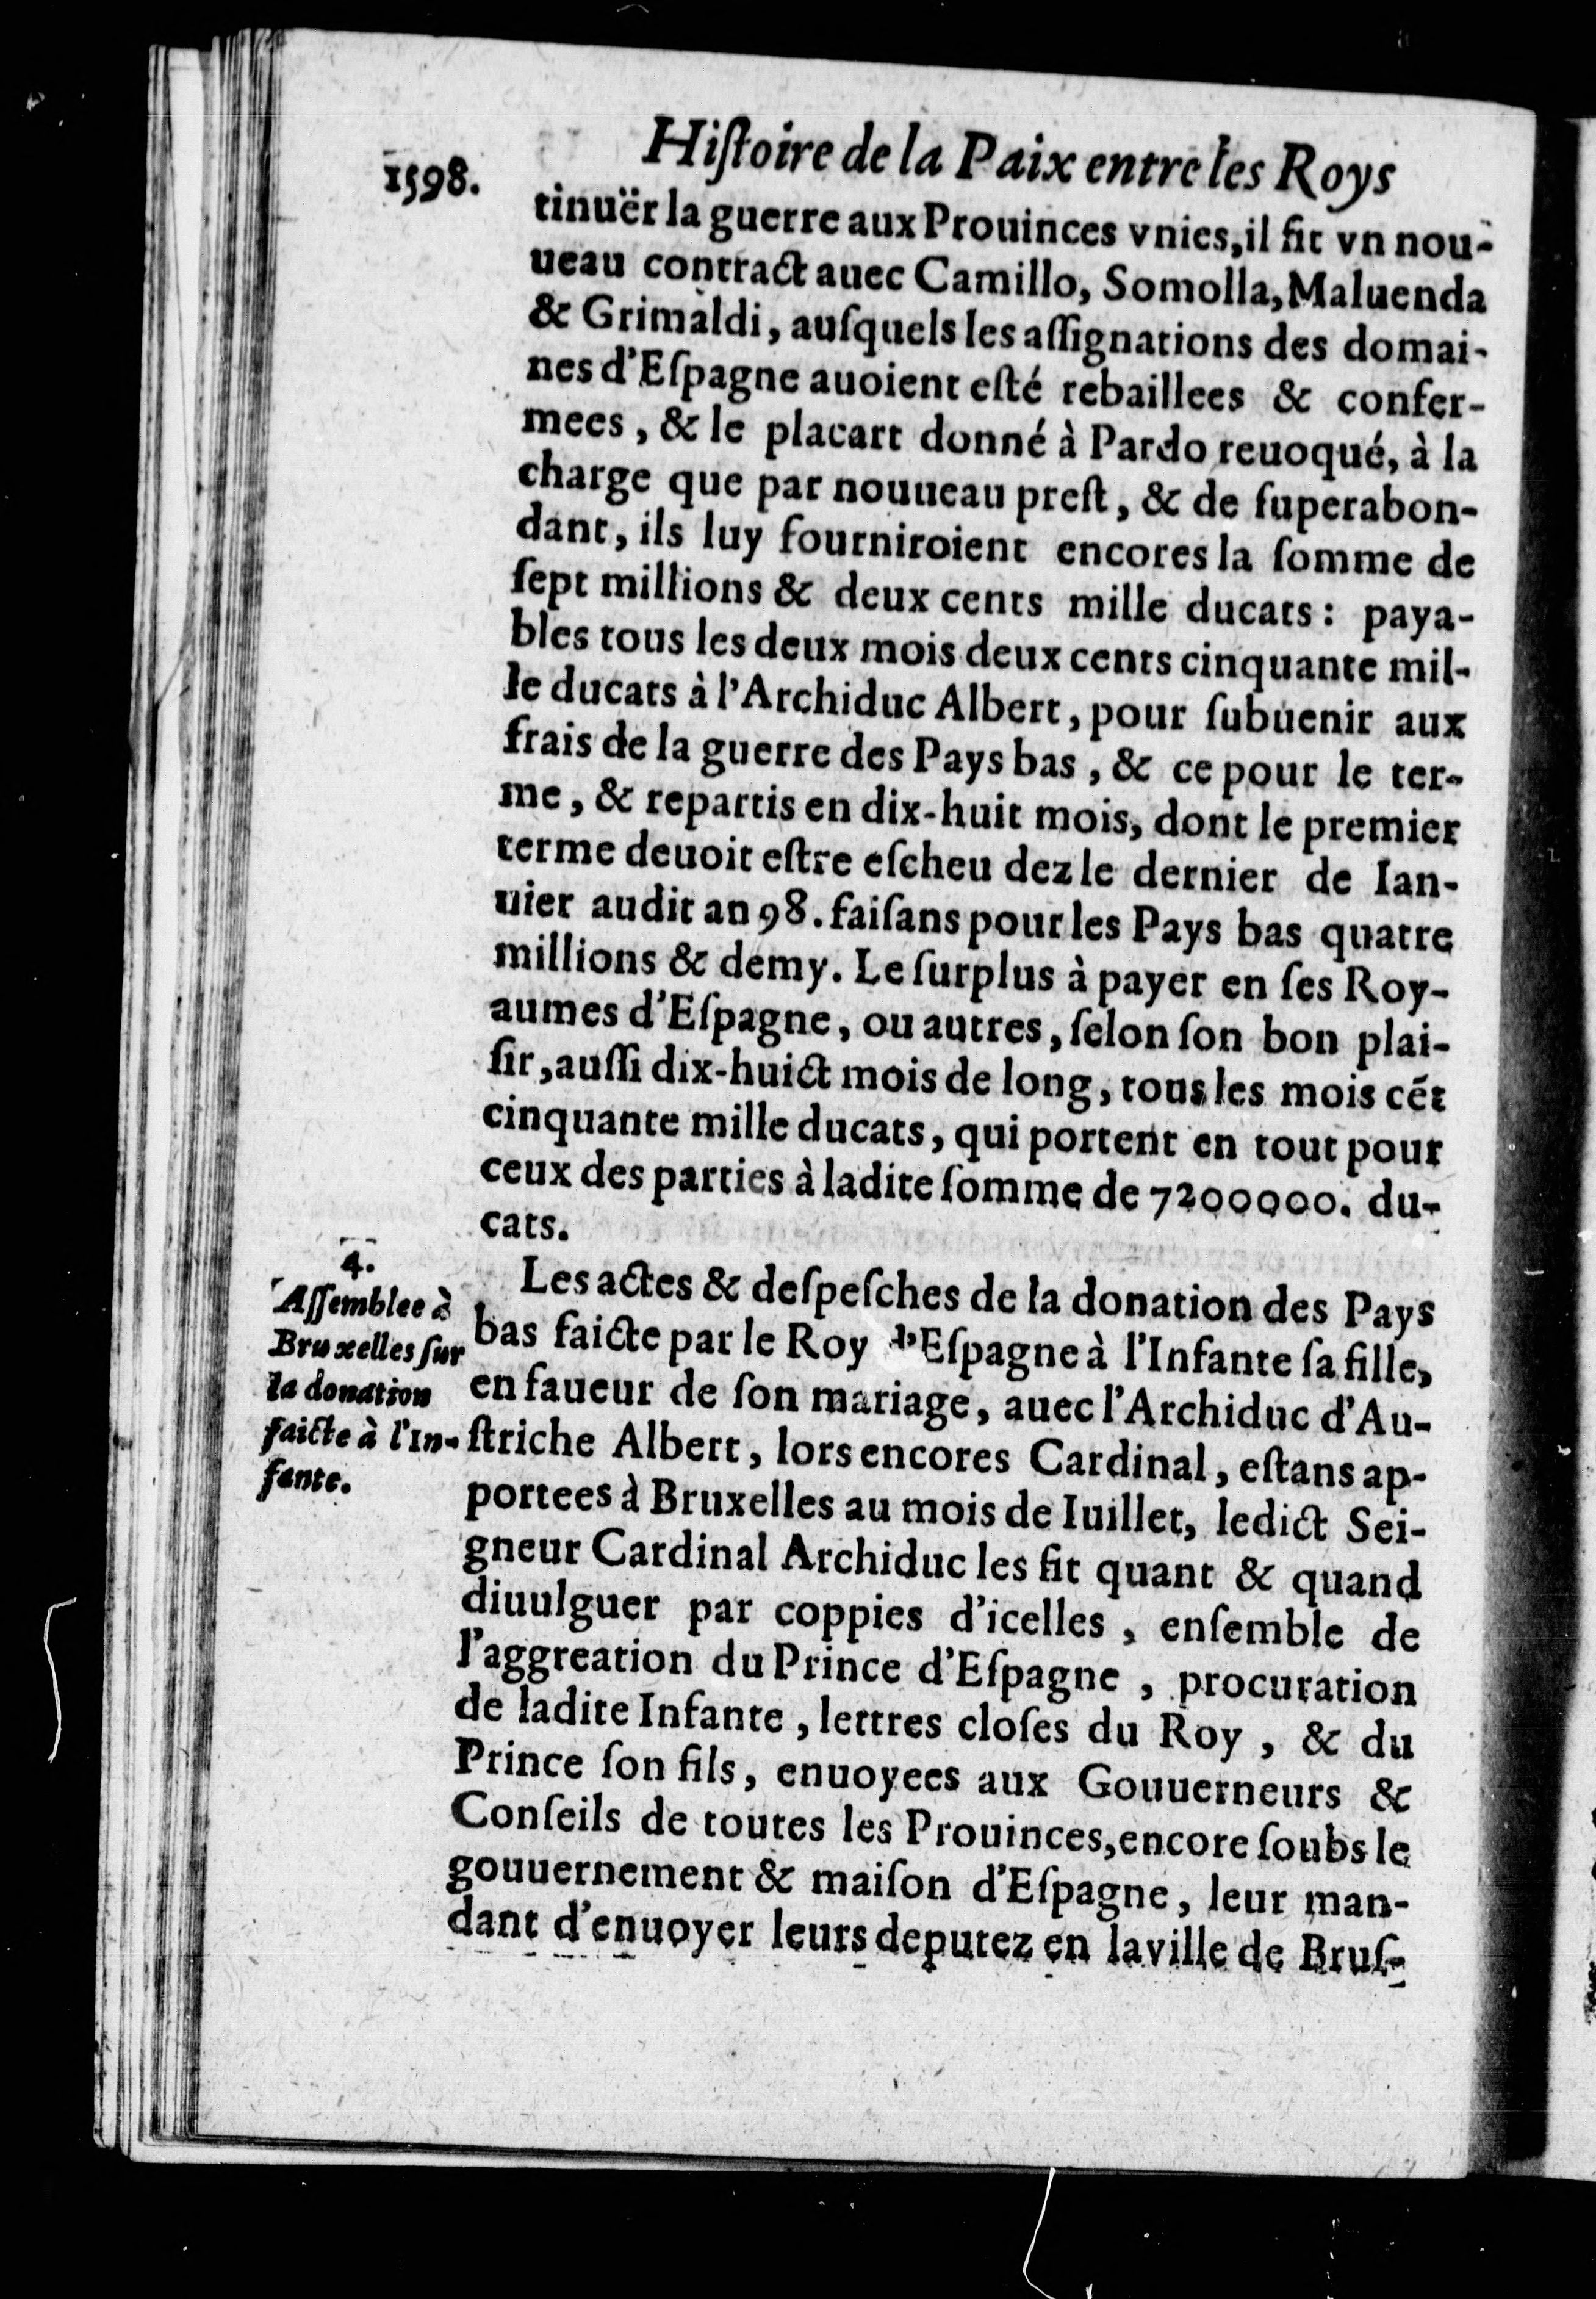 Hiſtoire de la Paix entre les Roys
1598.
tinuër la guerre aux Prouinces vnies, il fit vn nou-
ueau contract auec Camillo, Somolla, Maluenda
& Grimaldi, auſquels les aſſignations des domai-
nes d'Eſpagne auoient eſté rebaillees & confer-
mees, & le placart donné à Pardo reuoqué, à la
charge que par nouueau preſt, & de ſuperabon-
dant, ils luy fourniroient encores la ſomme de
ſept millions & deux cents mille ducats: paya-
bles tous les deux mois deux cents cinquante mil-
le ducats à l'Archiduc Albert, pour ſubuenir aux
frais de la guerre des Pays bas, & ce pour le ter-
me, & repartis en dix-huit mois, dont le premier
terme deuoit eſtre eſcheu dez le dernier de Ian-
uier audit an 98. faiſans pour les Pays bas quatre
millions & demy. Le ſurplus à payer en ſes Roy-
aumes d'Eſpagne, ou autres, ſelon ſon bon plai-
ſir, auſſi dix-huict mois de long, tous les mois cẽt
cinquante mille ducats, qui portent en tout pour
ceux des parties à ladite ſomme de 7200000. du-
cats.
4.
Aſſemblee à
Bruxelles ſur
la donation
faicte à l'In-
fante.
Les actes & deſpeſches de la donation des Pays
bas faicte par le Roy d'Eſpagne à l'Infante ſa fille,
en faueur de ſon mariage, auec l'Archiduc d'Au-
ſtriche Albert, lors encores Cardinal, eſtans ap-
portees à Bruxelles au mois de Iuillet, ledict Sei-
gneur Cardinal Archiduc les fit quant & quand
diuulguer par coppies d'icelles, enſemble de
l'aggreation du Prince d'Eſpagne, procuration
de ladite Infante, lettres cloſes du Roy, & du
Prince ſon fils, enuoyees aux Gouuerneurs &
Conſeils de toutes les Prouinces, encore ſoubs le
gouuernement & maiſon d'Eſpagne, leur man-
dant d'enuoyer leurs deputez en la ville de Bruſ-